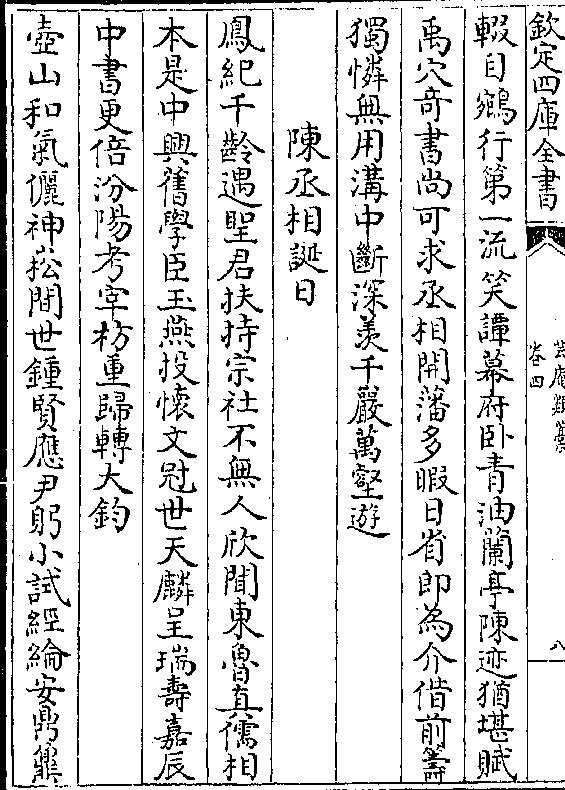 欽定四庫全書
芸庵類藳
卷四
八
輟自鵷行第一流笑譚幕府卧青油蘭亭陳迹猶堪賦
禹穴奇書尚可求丞相開藩多暇日省郎為介借前籌
獨憐無用溝中斷深羡千嚴萬壑遊
陳丞相誕日
鳳紀千齡遇聖君扶持宗社不無人欣聞東魯直儒相
本是中興舊學臣玉燕投懷文冠世天麟呈瑞壽嘉辰
中書更倍汾陽考宰枋重歸轉大鈞
壺山和氣儷神崧間世鍾賢應尹躬小試經綸安鼎鼐